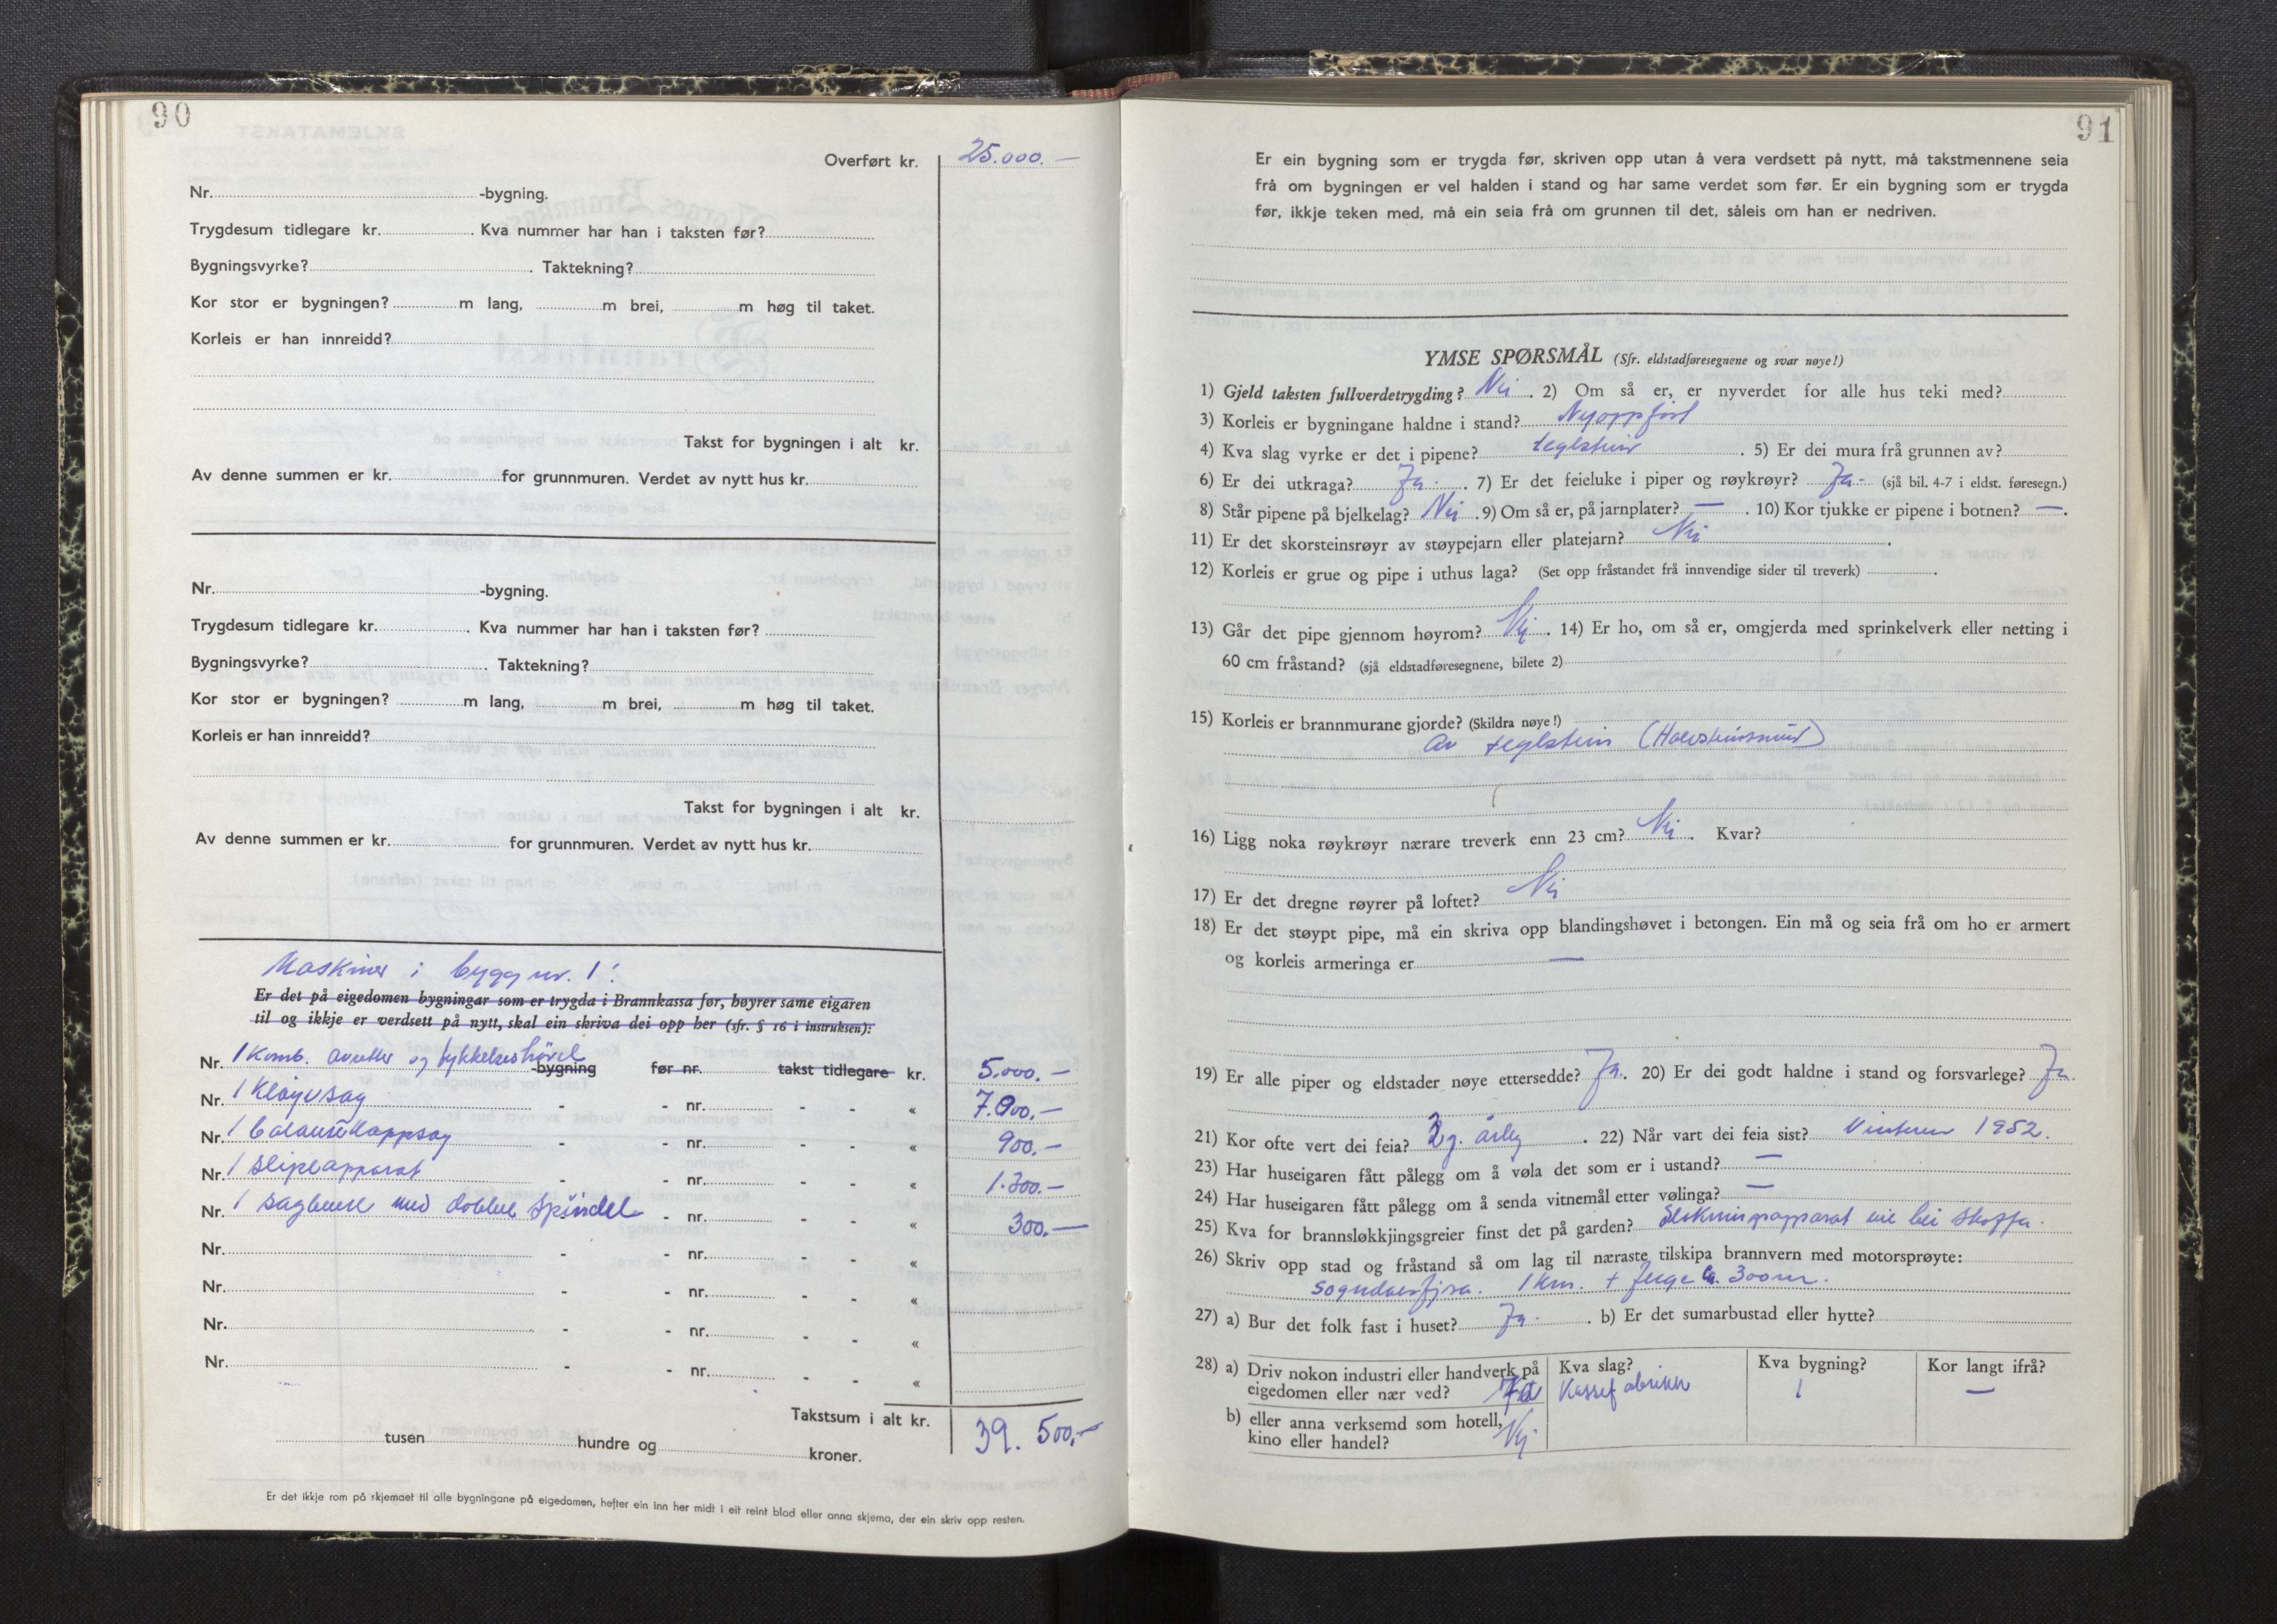 90
Overført kr. 25.000.—
Nr. -bygning.
Trygdesum tidlegare kr. . Kva nummer har han i taksten før?
Bygningsvyrke? . Taktekning?
Kor stor er bygningen? m lang, m brei, m høg til taket.
Korleis er han innreidd?
Takst for bygningen i alt kr.
Av denne summen er kr. for grunnmuren. Verdet av nytt hus kr.
Nr. -bygning.
Trygdesum tidlegare kr. . Kva nummer har han i taksten før?
Bygningsvyrke? . Taktekning?
Kor stor er bygningen? m lang, m brei, m høg til taket.
Korleis er han innreidd?
Takst for bygningen i alt kr.
Av denne summen er kr. for grunnmuren. Verdet av nytt hus kr.
Maskiner i bygg nr. 1:
Er det på eigedomen bygningar som er trygda i Brannkassa før, høyrer same eigaren
til og ikkje er verdsett på nytt, skal ein skriva dei opp her (sfr. § 16 i instruksen):
Nr. 1 Komb. avretter og tykkelseshövel -bygning før nr. takst tidlegare kr. 5.000.—
Nr. 1 Kløyvsag - - nr. - - « 7.000.—
Nr. 1 balansekappsag - - nr. - - « 900.—
Nr. 1 slipeapparat - - nr. - - « 1.300.—
Nr. 1 sagbenk med dobbel spindel - nr. - - « 300.—
Nr. - - nr. - - «
Nr. - - nr. - - «
Nr. - - nr. - - «
Nr. - - nr. - - «
Takstsum i alt kr. 39.500,—
tusen hundre og kroner.
Er det ikkje rom på skjemaet til alle bygningane på eigedomen, hefter ein inn her midt i eit reint blad eller anna skjema, der ein skriv opp resten.
91
Er ein bygning som er trygda før, skriven opp utan å vera verdsett på nytt, må takstmennene seia
frå om bygningen er vel halden i stand og har same verdet som før. Er ein bygning som er trygda
før, ikkje teken med, må ein seia frå om grunnen til det, såleis om han er nedriven.
YMSE SPØRSMÅL (Sfr. eldstadføresegnene og svar nøye!)
1) Gjeld taksten fullverdetrygding? Nei . 2) Om så er, er nyverdet for alle hus teki med?
3) Korleis er bygningane haldne i stand? Nyoppført
4) Kva slag vyrke er det i pipene? teglstein . 5) Er dei mura frå grunnen av?
6) Er dei utkraga? Ja . 7) Er det feieluke i piper og røykrøyr? Ja - (sjå bil. 4-7 i eldst. føresegn.)
8) Står pipene på bjelkelag? Nei . 9) Om så er, på jarnplater? — . 10) Kor tjukke er pipene i botnen? — .
11) Er det skorsteinsrøyr av støypejarn eller platejarn? Nei .
12) Korleis er grue og pipe i uthus laga? (Set opp fråstandet frå innvendige sider til treverk) .
13) Går det pipe gjennom høyrom? Nei . 14) Er ho, om så er, omgjerda med sprinkelverk eller netting i
60 cm fråstand? (sjå eldstadføresegnene, bilete 2)
15) Korleis er brannmurane gjorde? (Skildra nøye!)
av teglstein (Halvsteinsmur)
16) Ligg noka røykrøyr nærare treverk enn 23 cm? Nei . Kvar?
17) Er det dregne røyrer på loftet? Nei
18) Er det støypt pipe, må ein skriva opp blandingshøvet i betongen. Ein må og seia frå om ho er armert
og korleis armeringa er —
19) Er alle piper og eldstader nøye ettersedde? Ja . 20) Er dei godt haldne i stand og forsvarlege? Ja.
21) Kor ofte vert dei feia? 2 g. årleg . 22) Når vart dei feia sist? Vinteren 1952.
23) Har huseigaren fått pålegg om å vøla det som er i ustand? —
24) Har huseigaren fått pålegg om å senda vitnemål etter vølinga? —
25) Kva for brannsløkkjingsgreier finst det på garden? Slokningsapparat vil bli skaffa.
26) Skriv opp stad og fråstand så om lag til næraste tilskipa brannvern med motorsprøyte:
Sogndalsfjøra. 1 km. + ferge ca. 300 m.
27) a) Bur det folk fast i huset? Ja . b) Er det sumarbustad eller hytte?
28) a) Driv nokon industri eller handverk på Kva slag? Kva bygning? Kor langt ifrå?
eigedomen eller nær ved? Ja Kassefabrikk 1 —
b) eller anna verksemd som hotell,
kino eller handel? Nei